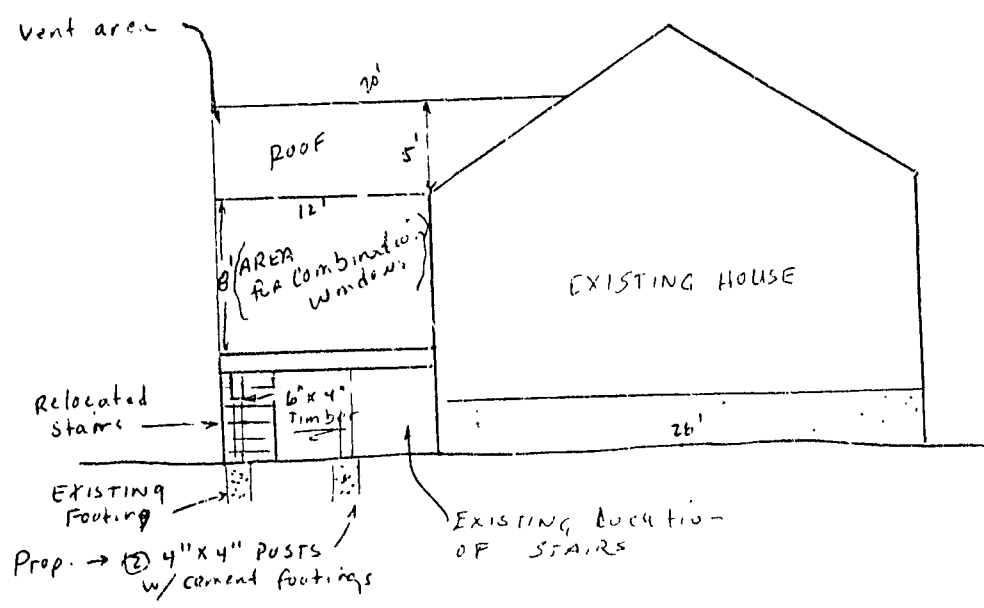 Vent area
20'
ROOF
5'
12'
8'
AREA
FOR Combination
Windows
EXISTING HOUSE
Relocated
Stairs
6"x4"
Timber
26'
EXISTING
Footing
EXISTING Location
OF STAIRS
Prop. → ② 4"x4" POSTS
w/ cement footings